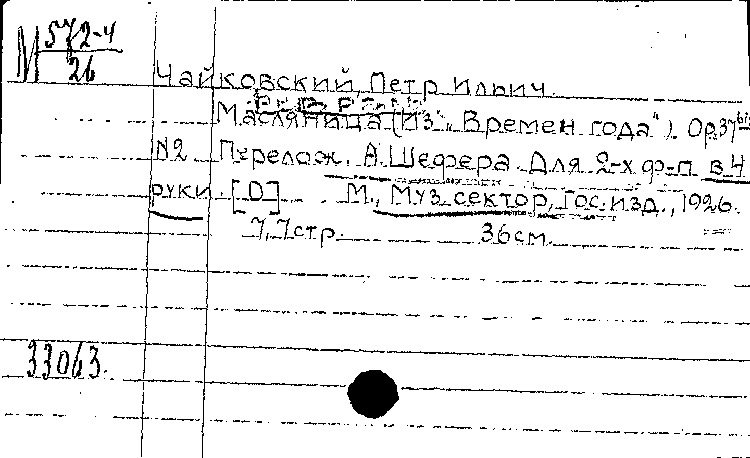 М 572-4
26
Чайковский, Петр Ильич.
Масляница (Из „Времен года"). Op.37 bis
N2 Перелож. А. Шефера. Для 2-х ф-п в 4
руки. [D] М., Муз. сектор, Гос. изд., 1926.
7,7 стр. 36 см.
33063.